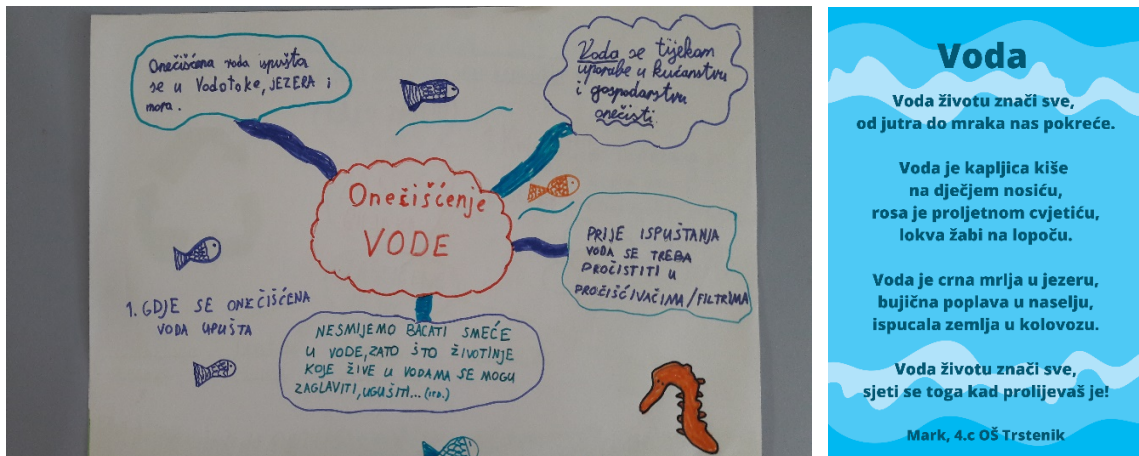 Onečišćena voda ispušta
se u Vodotoke, JEZERA i
mora.
Voda se tijekom
uporabe u kućanstvu
i gospodarstvu
onečisti.
Onečišćenje
VODE
PRIJE ISPUŠTANJA
VODA SE TREBA
PROČISTITI U
PROČIŠĆIVAČIMA/FILTRIMA
1. GDJE SE ONEČIŠĆENA
VODA UPUŠTA
NESMIJEMO BACATI SMEĆE
U VODE, ZATO ŠTO ŽIVOTINJE
KOJE ŽIVE U VODAMA SE MOGU
ZAGLAVITI, UGUŠITI... (ITD.)
Voda
Voda životu znači sve,
od jutra do mraka nas pokreće.
Voda je kapljica kiše
na dječjem nosiću,
rosa je proljetnom cvjetiću,
lokva žabi na lopoču.
Voda je crna mrlja u jezeru,
bujična poplava u naselju,
ispucala zemlja u kolovozu.
Voda životu znači sve,
sjeti se toga kad prolijevaš je!
Mark, 4.c OŠ Trstenik